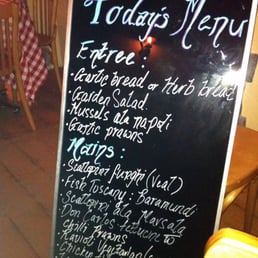 Today's Menu
Entree :
• Garlic bread or Herb bread
• Garden Salad.
• Mussels ala napoli
• Garlic prawns
Mains :
• Scallopini funghi (veal)
• Fish Toscany : Baramundi
Scallopini ala Marsala
Don Carlos fetucine
Chilli Prawns
Ravioli
Chicken